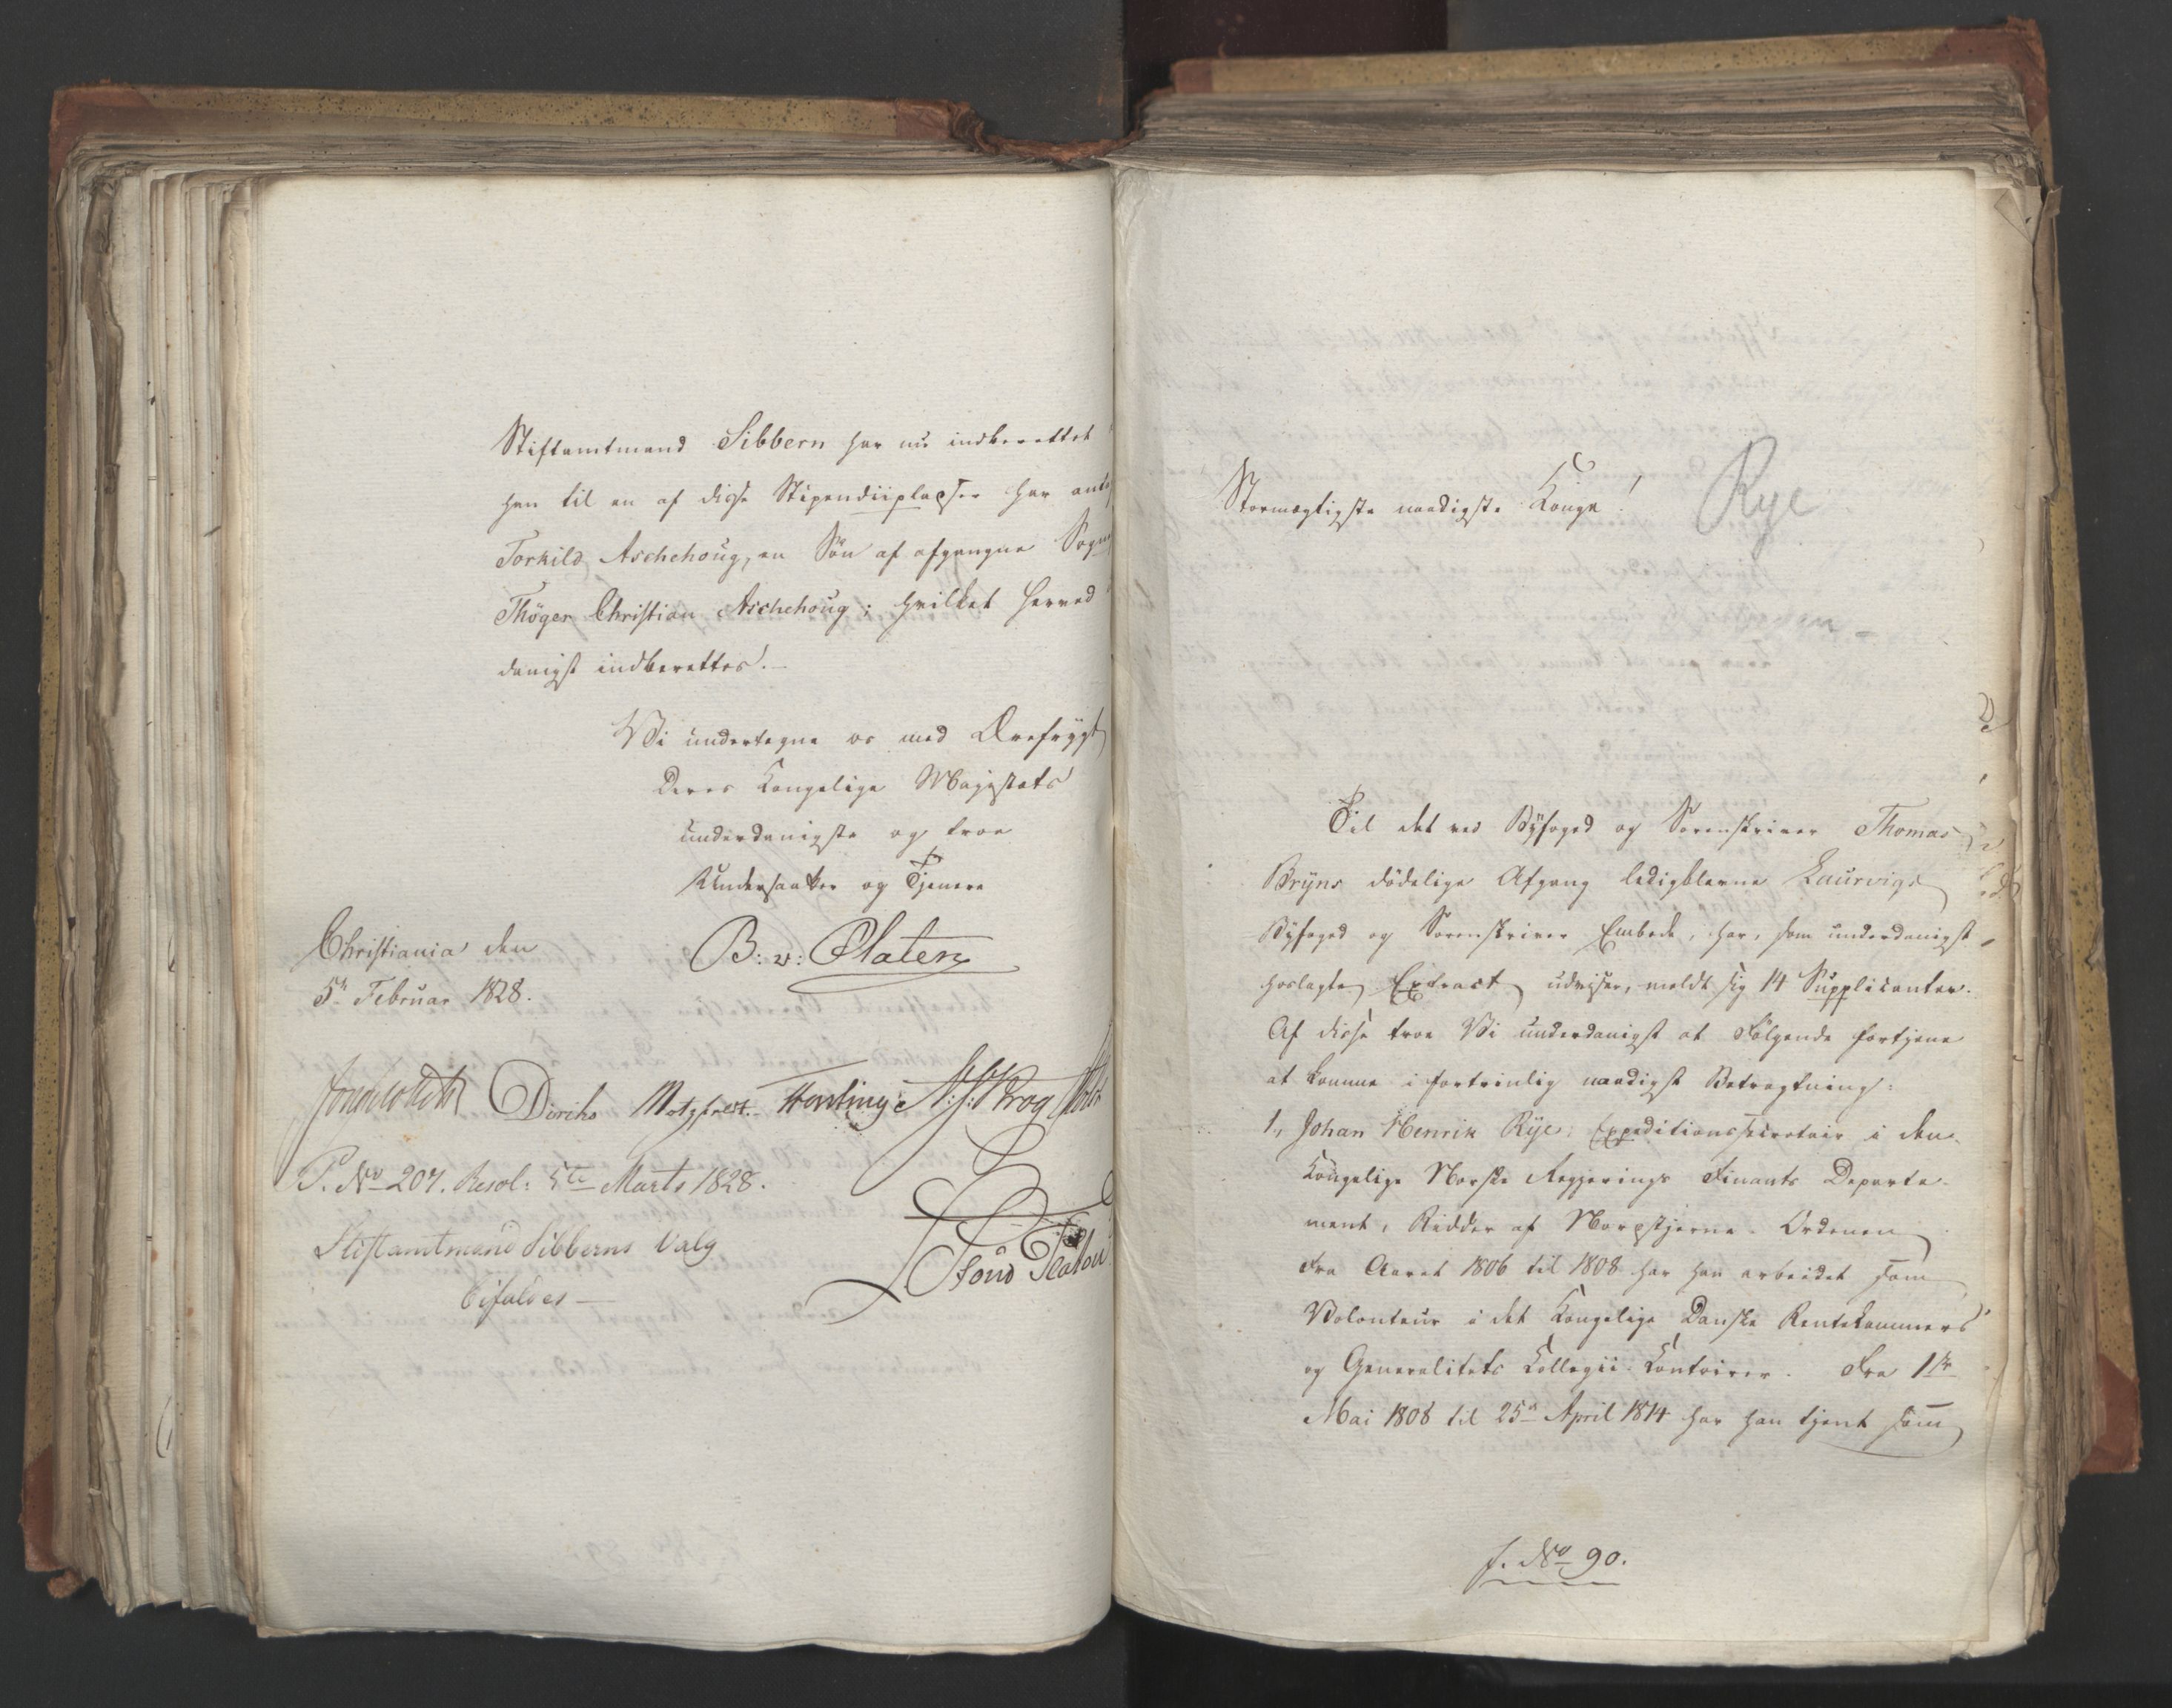 Stiftamtmand Sibbern har nu indberettet
han til en af disse Stipendiipladser har
Torkild Aschehoug, en Sön af afgangne
Thöger Christian Aschehoug; hvilket herved
danigst indberettes.
Vi undertegne os med Ærefrÿgt
Deres Kongelige Majestæts
underdanigste og troe
Undersaatter og Tjenere
Christiania den
5te Februar 1828.
B: v: Platen
Diriks Motzfeldt. N: J: Krog
P. No 207. Resol: 5te Marts 1828.
Stiftamtmand Sibberns Valg
bifaldes
Stormægtigste naadigste Konge!
Rye
Til det ved Bÿfoged og Sorenskriver Thomas
Brÿns dödelige Afgang ledigblevne Laurvigs
Bÿfoged og Sorenskriver Embede, har, som underdanigst
hoslagte Extract udviser, meldt sig 14 Supplicanter.
Af disse troe Vi underdanigst at Fölgende fortjene
at komme i fortrinlig naadigst Betragtning:
1., Johan Henrik Rÿe: Expeditionssecretair i den
Kongelige Norske Regjerings Finants Departe-
ment, Ridder af Nordstjerne-Ordenen
Fra Aaret 1806 til 1808 har han arbeidet som
Volonteur i det Kongelige Danske Rentekammers
og Generalitets Collegii Contoirer. Fra 1ste
Mai 1808 til 25de April 1814 har han tjent som
f. No 90.